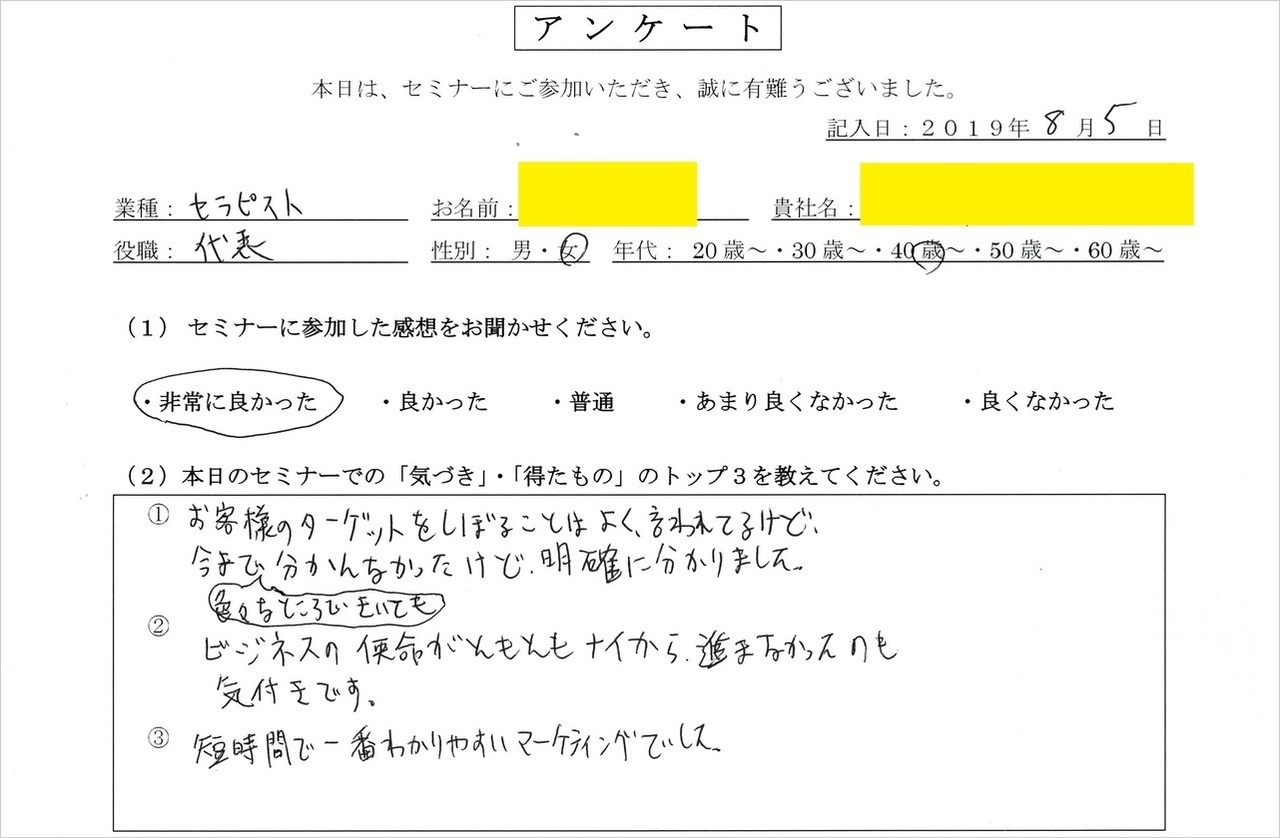 アンケート
本日は、セミナーにご参加いただき、誠に有難うございました。
記入日：２０１９年 8 月 5 日
業種： セラピスト お名前： 貴社名：
役職： 代表 性別： 男・女 年代： 20歳～・30歳～・40歳～・50歳～・60歳～
（１） セミナーに参加した感想をお聞かせください。
・非常に良かった ・良かった ・普通 ・あまり良くなかった ・良くなかった
（２）本日のセミナーでの「気づき」・「得たもの」のトップ３を教えてください。
① お客様のターゲットをしぼることはよく、言われてるけど、
今まで分かんなかったけど、明確に分かりました。
色々なところできいても
② ビジネスの使命がそもそもナイから、進まなかったのも
気付きです。
③ 短時間で一番わかりやすいマーケティングでした。